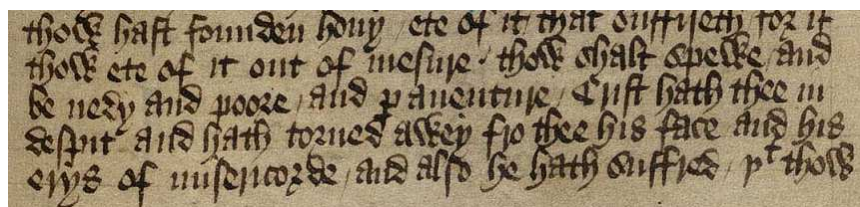 thow hast founden hony / ete of it that suffiseth for if
thow ete of it out of mesure · thow shalt spewe / and
be nedy and poore / and ꝑauenture / Crist hath thee in
despit and hath torned awey fro thee his face and his
erys of misericorde / and also he hath suffred / þᵗ thow